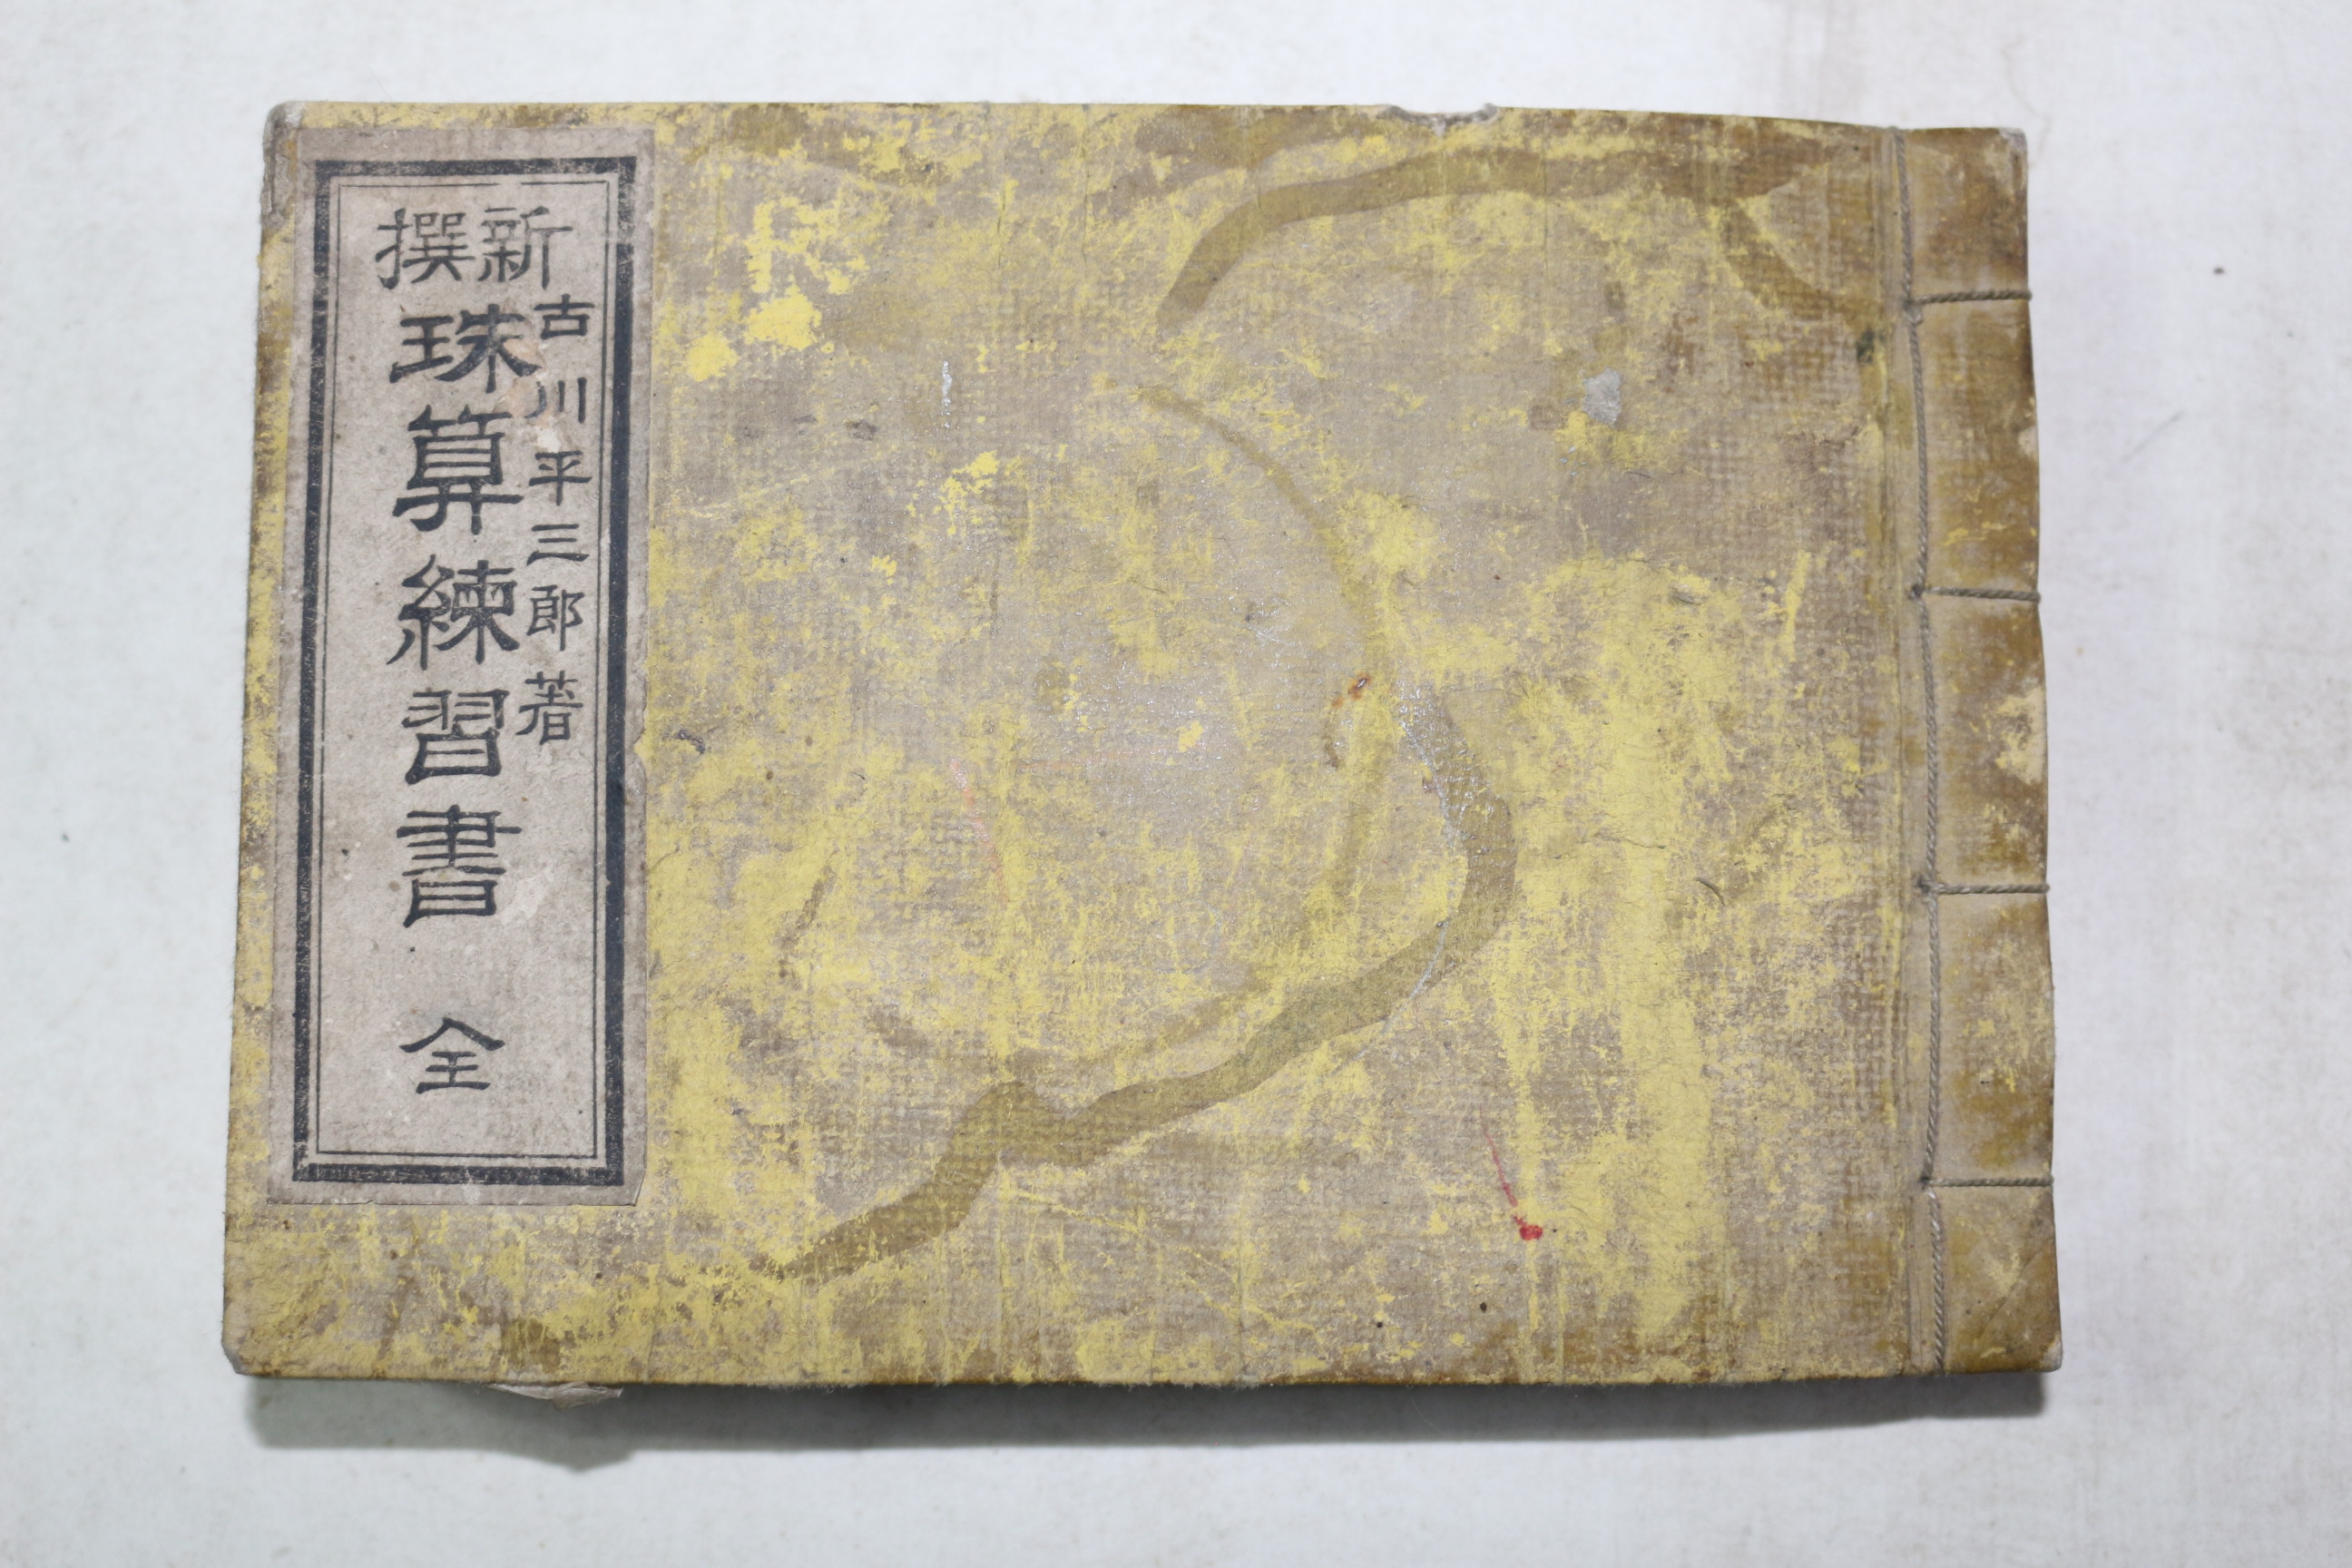 古川平三郎著
新撰
珠算練習書 全